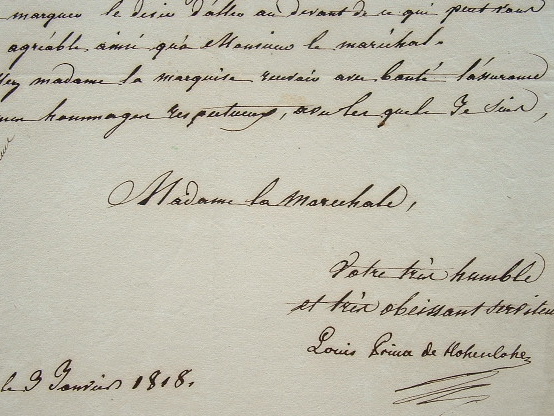 marquer le désir d'aller au devant de ce qui peut vous
agréable ainsi qu'à Monsieur le maréchal.
madame la marquise recevoir avec bonté l'assurance
mes hommages respectueux, avec les quels Je suis,
Madame la Marechale,
Votre très humble
et très obeissant serviteu
Louis Prince de Hohenlohe
le 3 Janvier 1818.